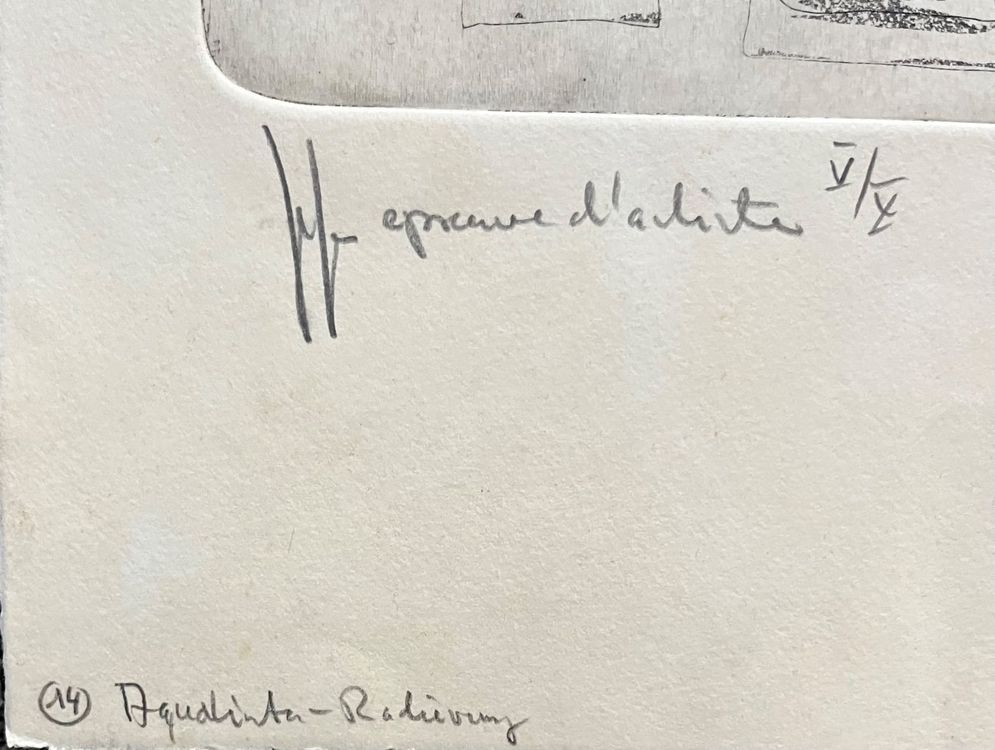 epreuve d'artiste V/X
(14) Aquatinta-Radierung